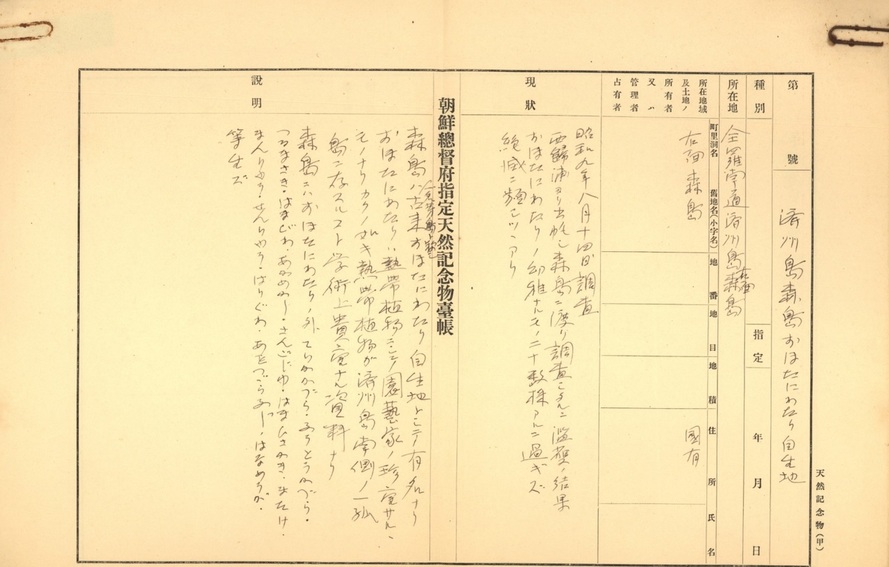 天然記念物(甲)
第 號 濟州島森島おほたにわたり自生地
種別 指定 年 月 日
所在地 全羅南道濟州島右面森島
所在地域及土地ノ所有者又ハ管理者占有者
町里洞名 舊地名(小字名) 地番 地目 地積 住所氏名
右面森島 國有
現狀
昭和九年八月十四日調査
西歸浦ヨリ出帆シ森島ニ渡リ調査セルニ濫獲ノ結果
おほたにわたりノ幼稚ナルモノ二十數株アルニ過ギズ
絶滅ニ頻シツヽアリ
朝鮮總督府指定天然記念物臺帳
說明
森島ハ古來おほたにわたり自生地トシテ有名ナリ
おほたにわたりハ熱帶植物ニシテ園藝家ノ珍重サルヽ
モノナリカクノ如キ熱帶植物ガ濟州島南側ノ一孤
島ニ存スルハ學術上貴重ナル資料ナリ
森島ニハおほたにわたりノ外ていかかづら・ふうとうかづら・
つるまさき・はまびわ・あかめがし・さんごじゅ・はまひさかき・まだけ・
まんりやう・せんりやう・はりぐわ・はなめうが・
等生ズ